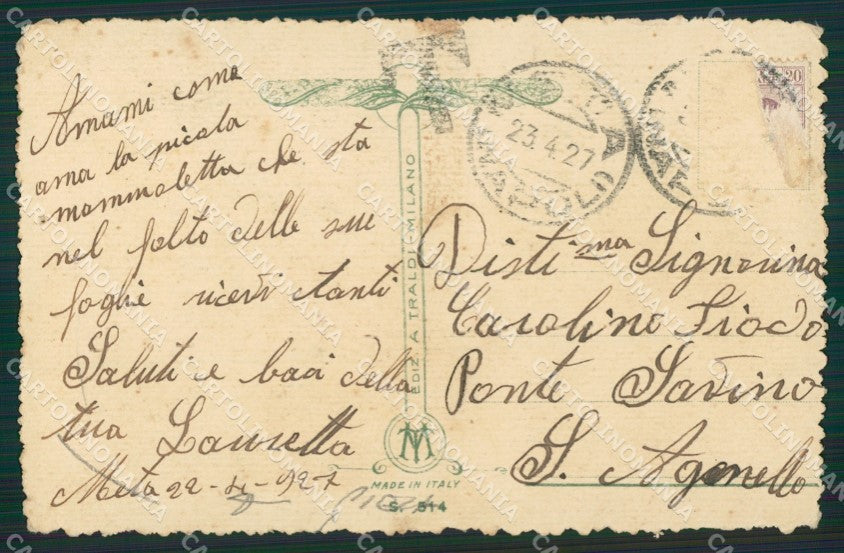 Amami come
ama la picola
mammoletta che sta
nel folto delle sue
foglie ricevi tanti
Saluti e baci della
tua Lauretta
Meta 22-4-927
EDIZ. A TRALDI-MILANO
MADE IN ITALY
S. 514
T
23.4.27
20
Disti.ma Signorina
Carolino Fiodo
Ponte Savino
S. Agnello
CARTOLINOMANIA